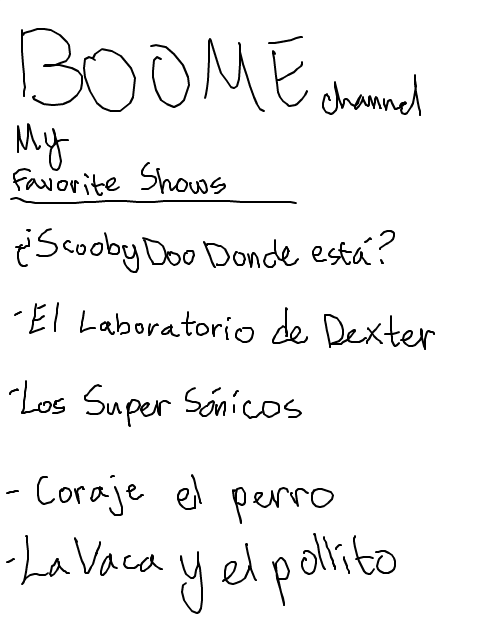 BOOME channel
My
Favorite Shows
¿Scooby Doo Donde está?
-El Laboratorio de Dexter
-Los Super Sónicos
- Coraje el perro
-La Vaca y el pollito